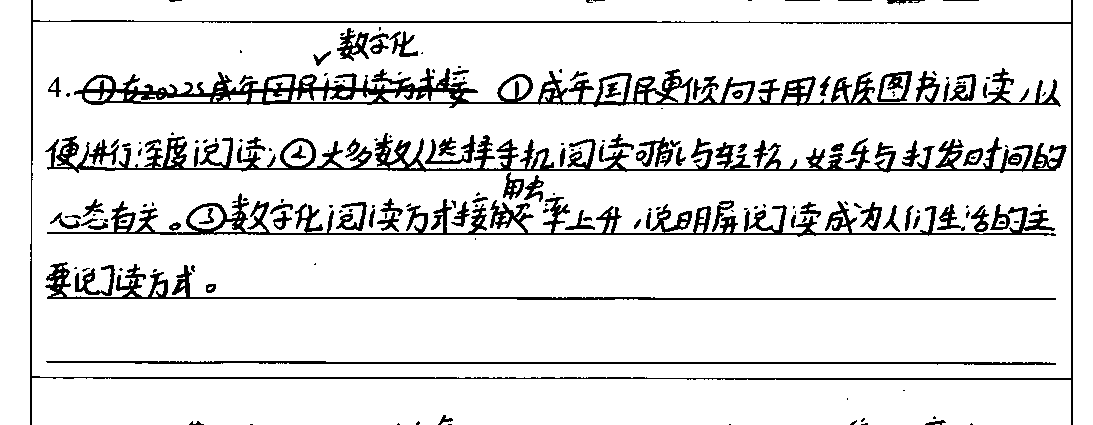 数字化
4. ①在2022年成年国民阅读方式接 ①成年国民更倾向于用纸质图书阅读，以
便进行深度阅读；②大多数人选择手机阅读可能与轻松，娱乐与打发时间的
心态有关。③数字化阅读方式接触率上升，说明屏阅读成为人们生活的主
要阅读方式。